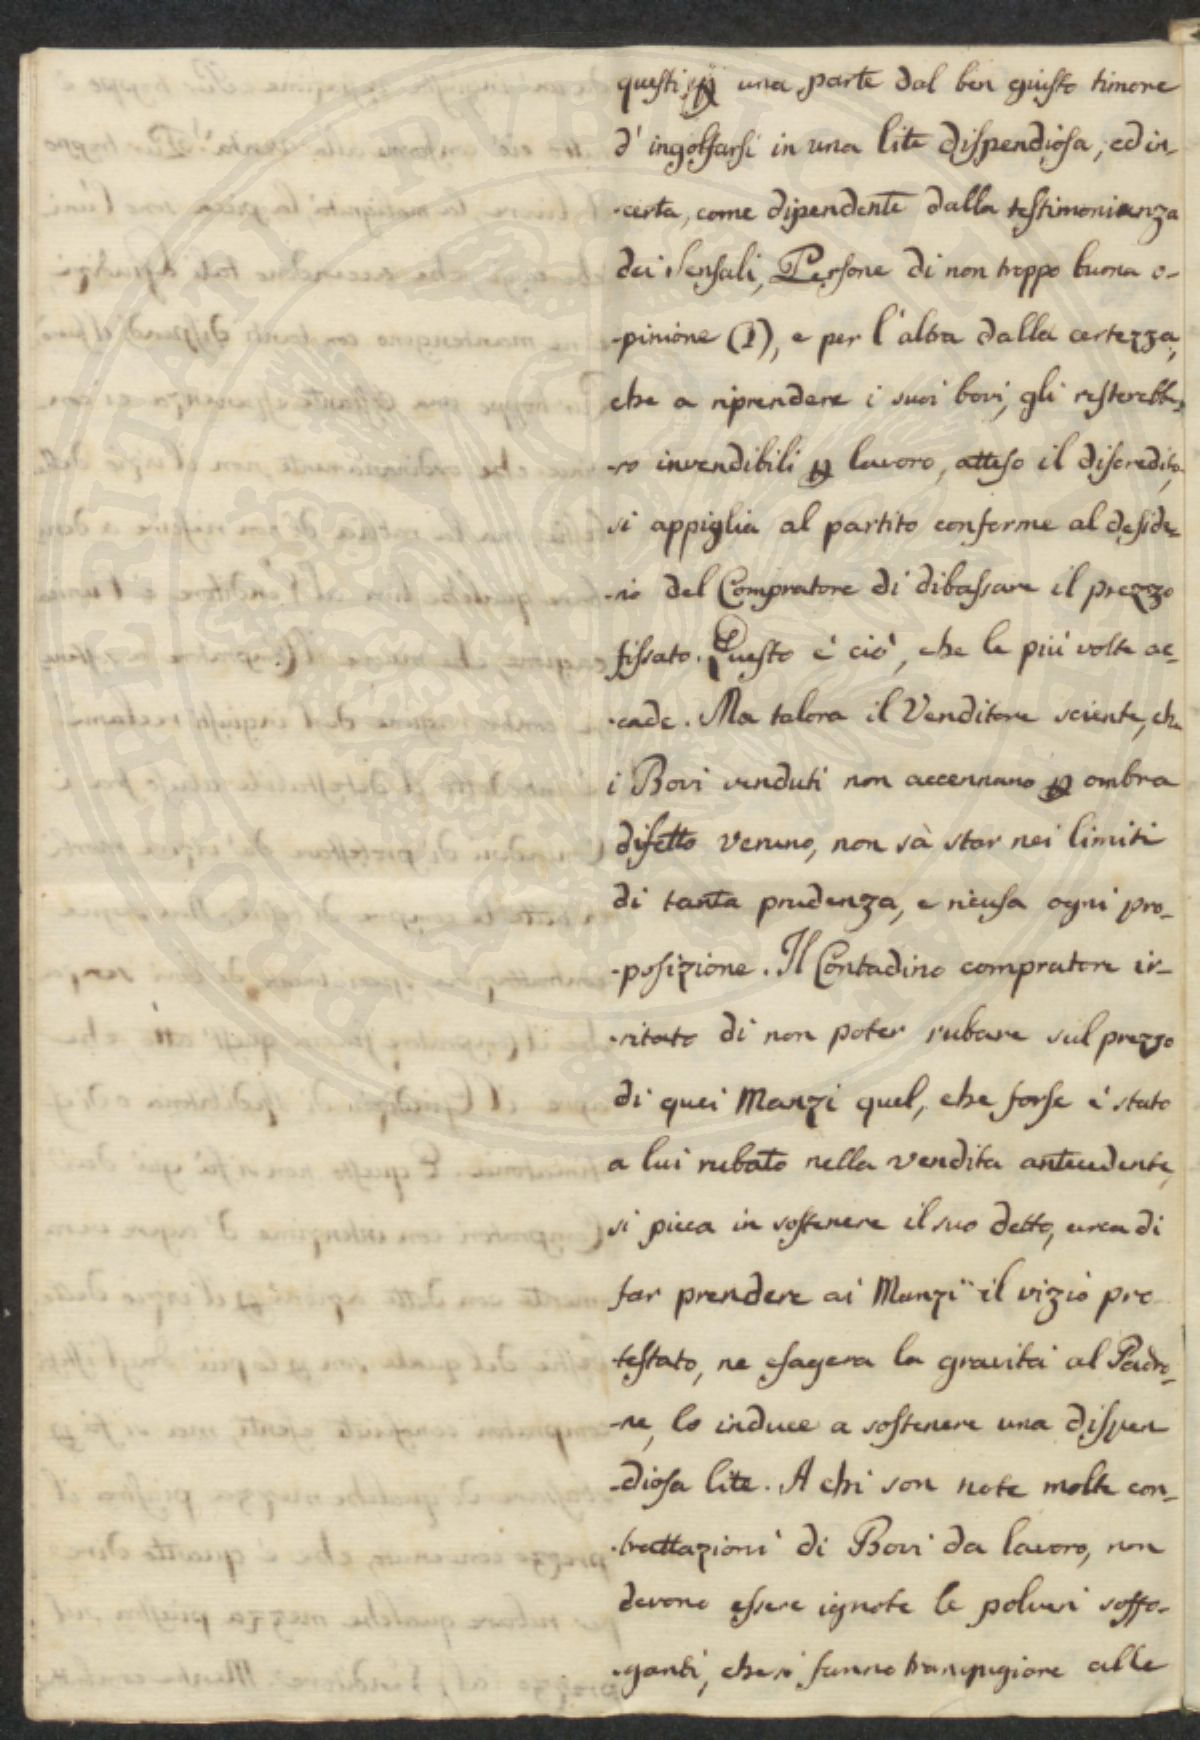 questi, ꝑ una parte dal ben giusto timore
d' ingolfarsi in una lite dispendiosa, ed in-
-certa, come dipendente dalla testimonianza
dei Sensali, Persone di non troppo buona o-
-pinione (1), e per l'altra dalla certezza,
che a riprendere i suoi bovi, gli resterebbe-
-ro invendibili ꝑ lavoro, atteso il discredito,
si appiglia al partito conforme al deside-
-rio del Compratore di dibassare il prezzo
fissato. Questo è ciò, che le più volte ac-
-cade. Ma talora il Venditore sciente, che
i Bovi venduti non accennano ꝑ ombra
difetto veruno, non sà star nei limiti
di tanta prudenza, e ricusa ogni pro-
-posizione. Il Contadino compratore ir-
-ritato di non poter rubare sul prezzo
di quei Manzi quel, che forse è stato
a lui rubato nella vendita antecedente,
si picca in sostenere il suo detto, cerca di
far prendere ai Manzi il vizio pro-
testato, ne esagera la gravità al Padro-
-ne, lo induce a sostenere una dispen
-diosa lite. A chi son note molte con-
-trattazioni di Bovi da lavoro, non
devono essere ignote le polveri soffo-
-ganti, che si fanno trangugiare alle
POSTERITATI PVBLICAE